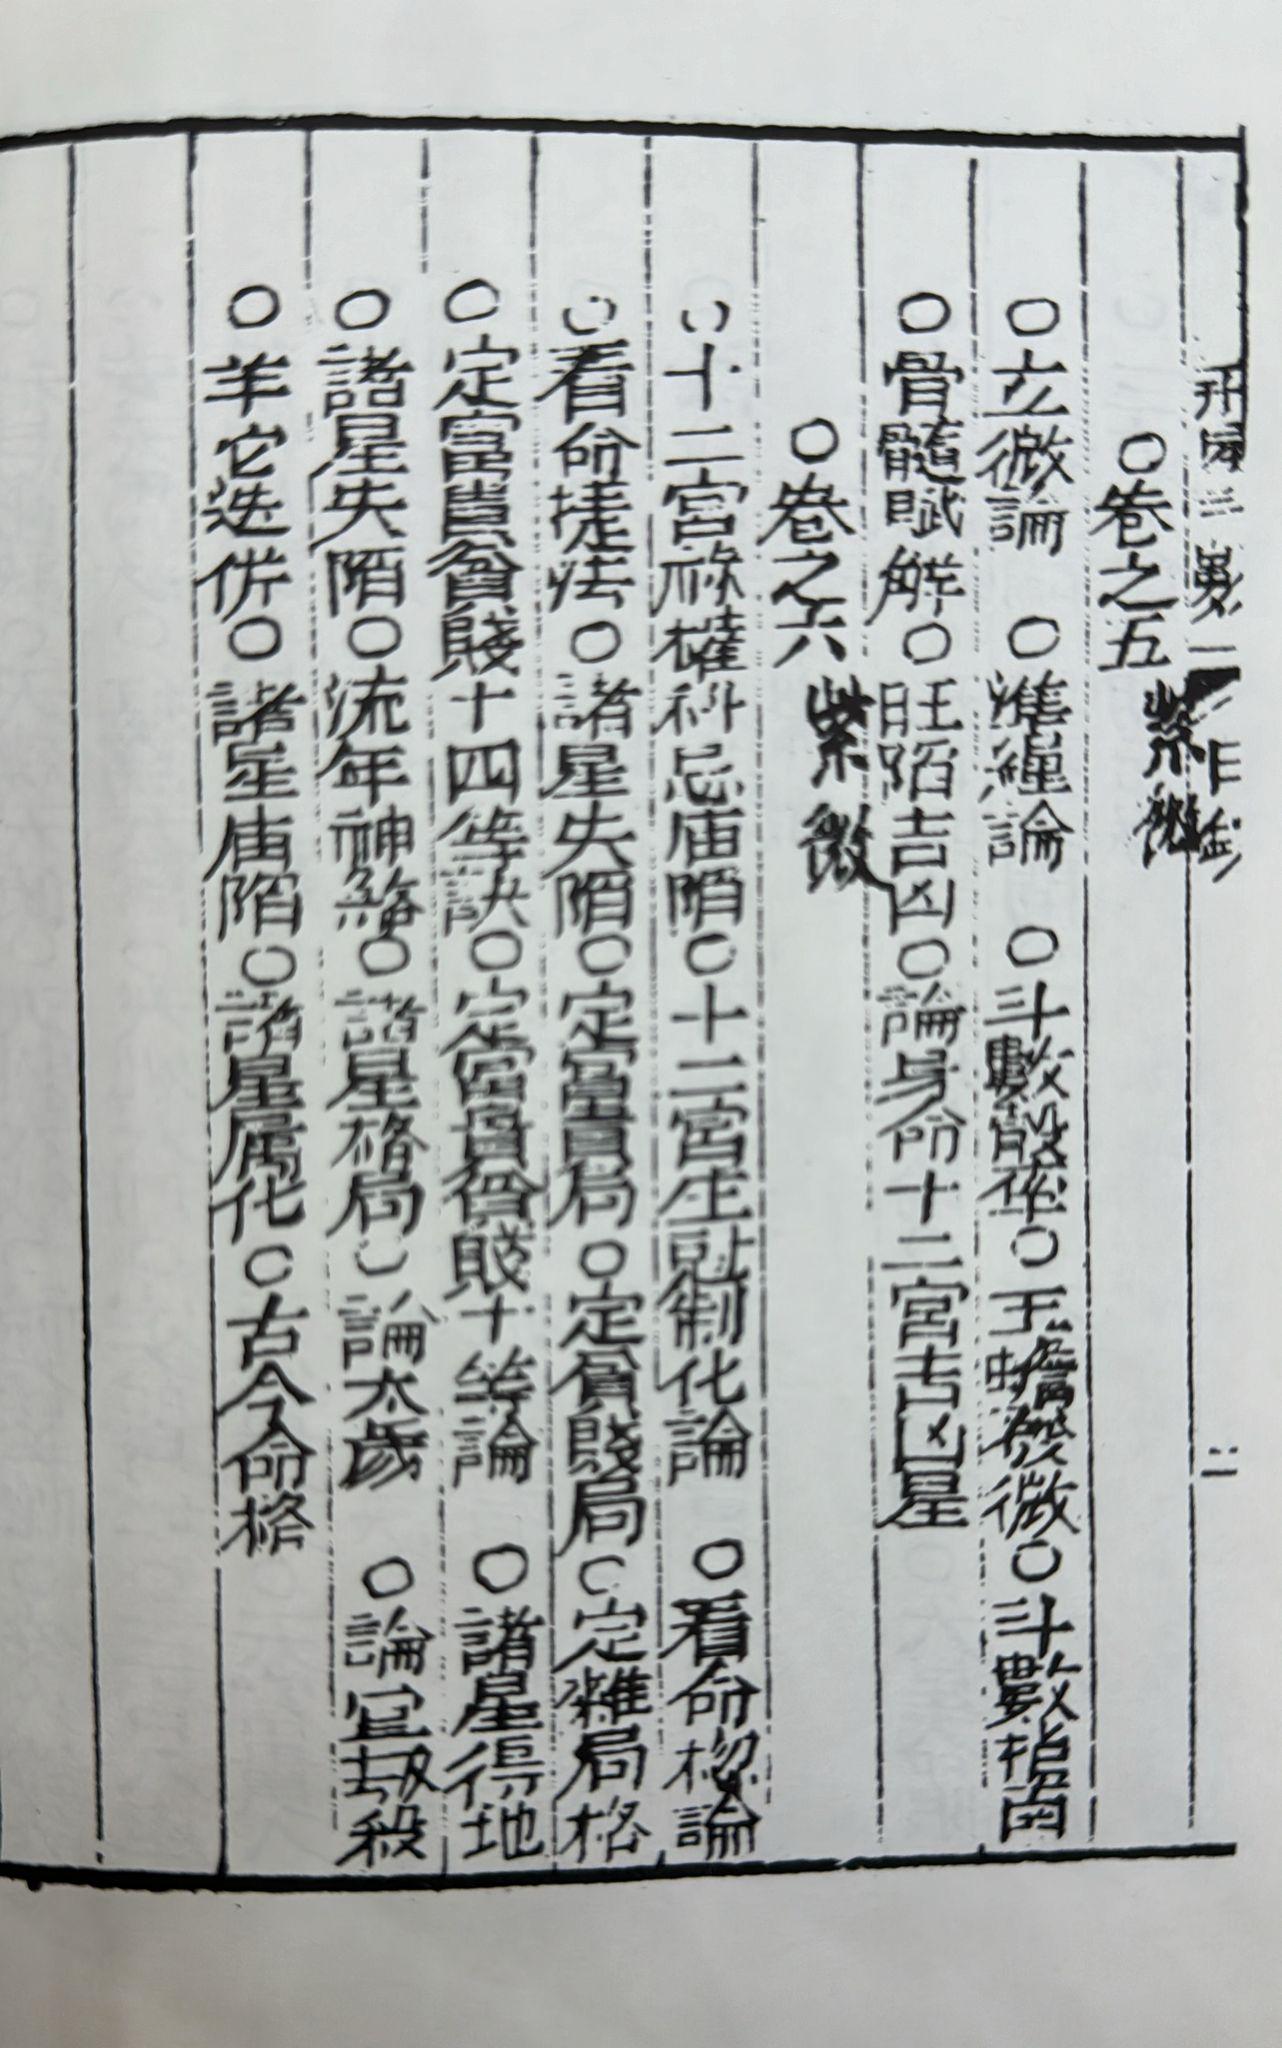 ○卷之五 紫微
○立微論 ○準繩論 ○斗數㲉率○玉蟾發微○斗數指南
○骨髓賦解○旺陷吉凶○論身命十二宮吉凶星
○卷之六 紫微
○十二宮祿權科忌庙陷○十二宮生尅制化論 ○看命揔論
○看命捷法○諸星失陷○定富貴局○定貧賤局○定雜局格
○定富貴貧賤十四等訣○定富貴貧賤十等論 ○諸星得地
○諸星失陷○流年神煞○諸星格局○論太歲 ○論宜劫殺
○羊它迭併○諸星庙陷○諸星属化○古今命格
二